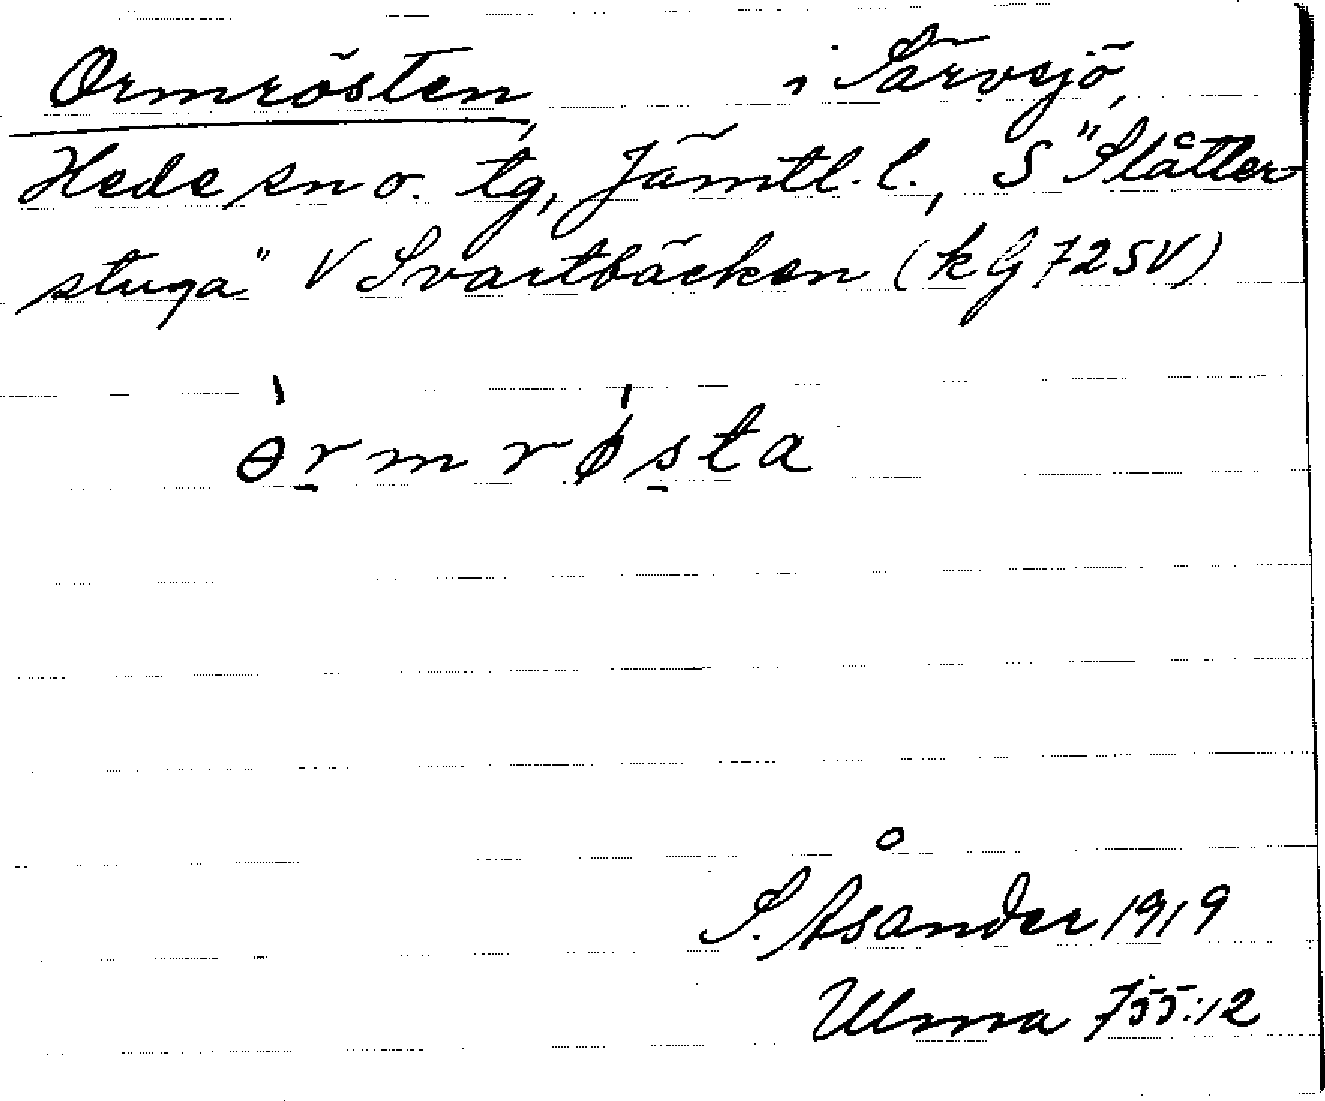 Ormrösten i Särvsjö,
Hede sn o. tg, Jämtl. l., S "Slåtter-
stuga" V Svartbäcken (kG 72SV)
ɵ̀rmrǿsta
S. Åsander 1919
Ulma 755:12